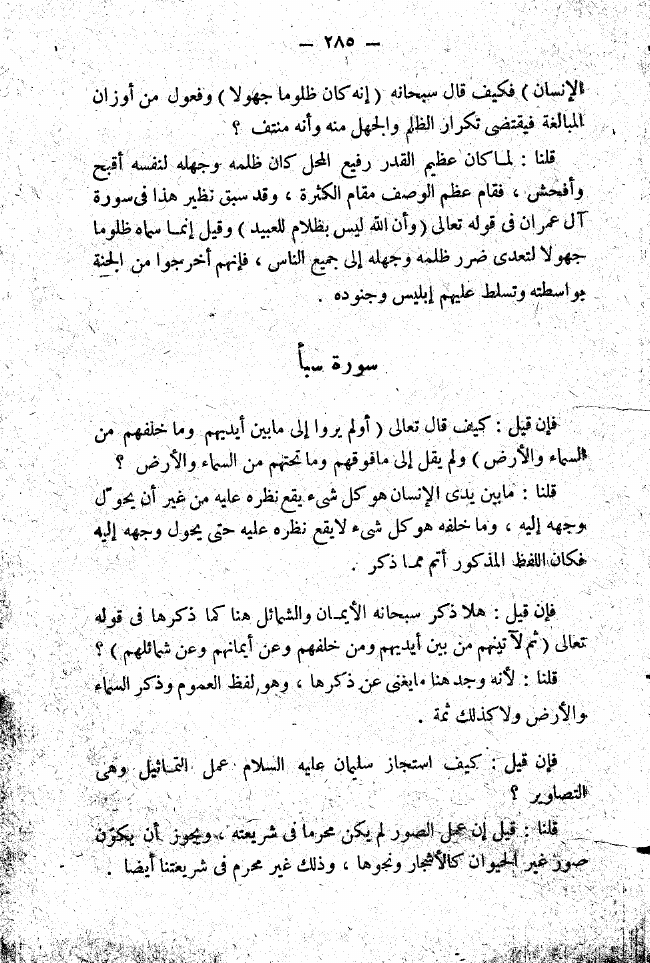 — ٢٨٥ —
الإنسان ) فكيف قال سبحانه ( إنه كان ظلوما جهولا ) وفعول من أوزان
المبالغة فيقتضى تكرار الظلم والجهل منه وأنه منتف ؟
قلنا : لما كان عظيم القدر رفيع المحل كان ظلمه وجهله لنفسه أقبح
وأفحش ، فقام عظم الوصف مقام الكثرة ، وقد سبق نظير هذا فى سورة
آل عمران فى قوله تعالى ( وأن الله ليس بظلام للعبيد ) وقيل إنما سماه ظلوما
جهولا لتعدى ضرر ظلمه وجهله إلى جميع الناس ، فإنهم أخرجوا من الجنة
بواسطته وتسلط عليهم إبليس وجنوده .
سورة سبأ
فإن قيل : كيف قال تعالى ( أولم يروا إلى مابين أيديهم وما خلفهم من
السماء والأرض ) ولم يقل إلى مافوقهم وما تحتهم من السماء والأرض ؟
قلنا : مابين يدى الإنسان هو كل شىء يقع نظره عليه من غير أن يحول
وجهه إليه ، وما خلفه هو كل شىء لايقع نظره عليه حتى يحول وجهه إليه
فكان اللفظ المذكور أتم مما ذكر .
فإن قيل : هلا ذكر سبحانه الأيمان والشمائل هنا كما ذكرها فى قوله
تعالى ( ثم لآتينهم من بين أيديهم ومن خلفهم وعن أيمانهم وعن شمائلهم ) ؟
قلنا : لأنه وجد هنا مايغنى عن ذكرها ، وهو لفظ العموم وذكر السماء
والأرض ولا كذلك ثمة .
فإن قيل : كيف استجاز سليمان عليه السلام عمل التماثيل وهى
التصاوير ؟
قلنا : قيل إن عمل الصور لم يكن محرما فى شريعته ، ويجوز أن يكون
صور غير الحيوان كالأشجار ونحوها ، وذلك غير محرم فى شريعتنا أيضا .